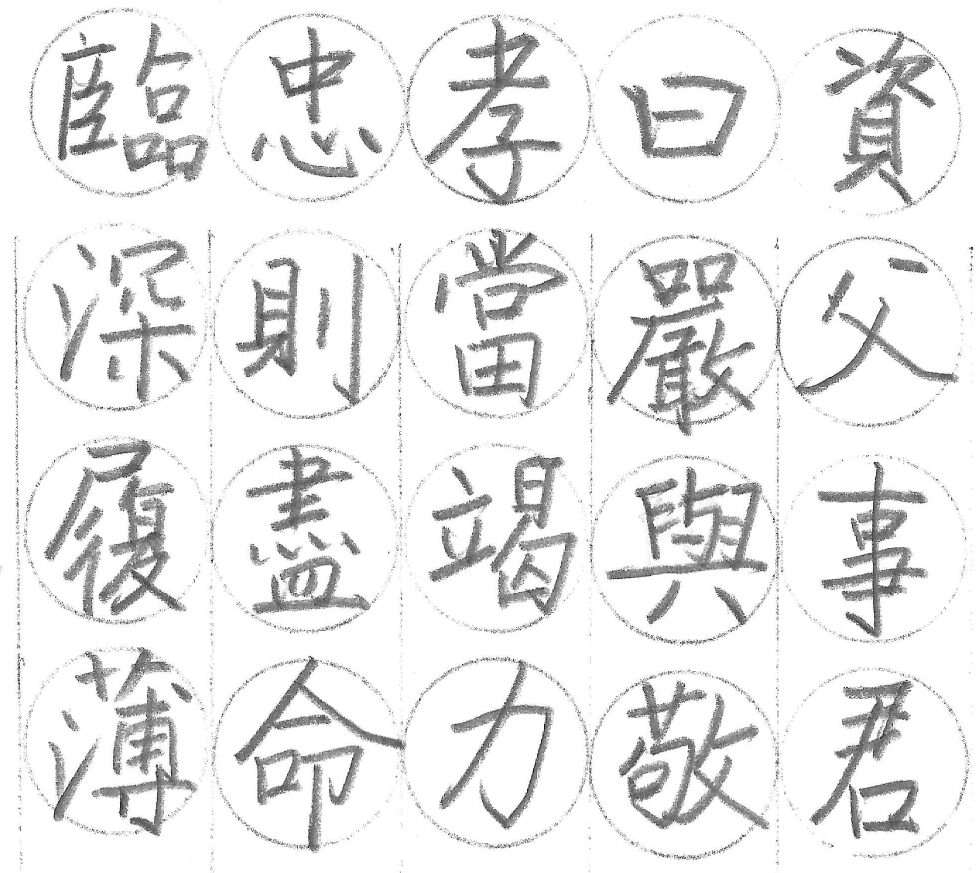 資父事君
曰嚴與敬
孝當竭力
忠則盡命
臨深履薄